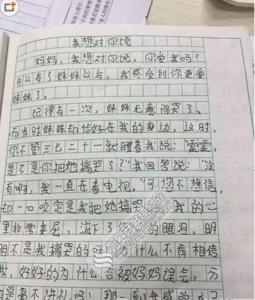 我想对你说
妈妈,我想对你说,你爱我吗?
自从有了妹妹以后,我感受到你更爱
妹妹了。
记得有一次,妹妹无意间哭了,
而当时妹妹的恰好在我的身边,这时,
你不管三七二十一就瞪着我说:"雯雯,
是不是你把她搞哭了?"我回答说:"没
有啊,我一直在看电视。"可您不想信,
却一口咬定是我把她搞哭。我的心
里非常委屈,流下了的眼泪,明
明不是我搞哭的可为什么不肯相信
我,好好的为什么会被妈妈误会,
是毫不讲礼吗?那一刻我感